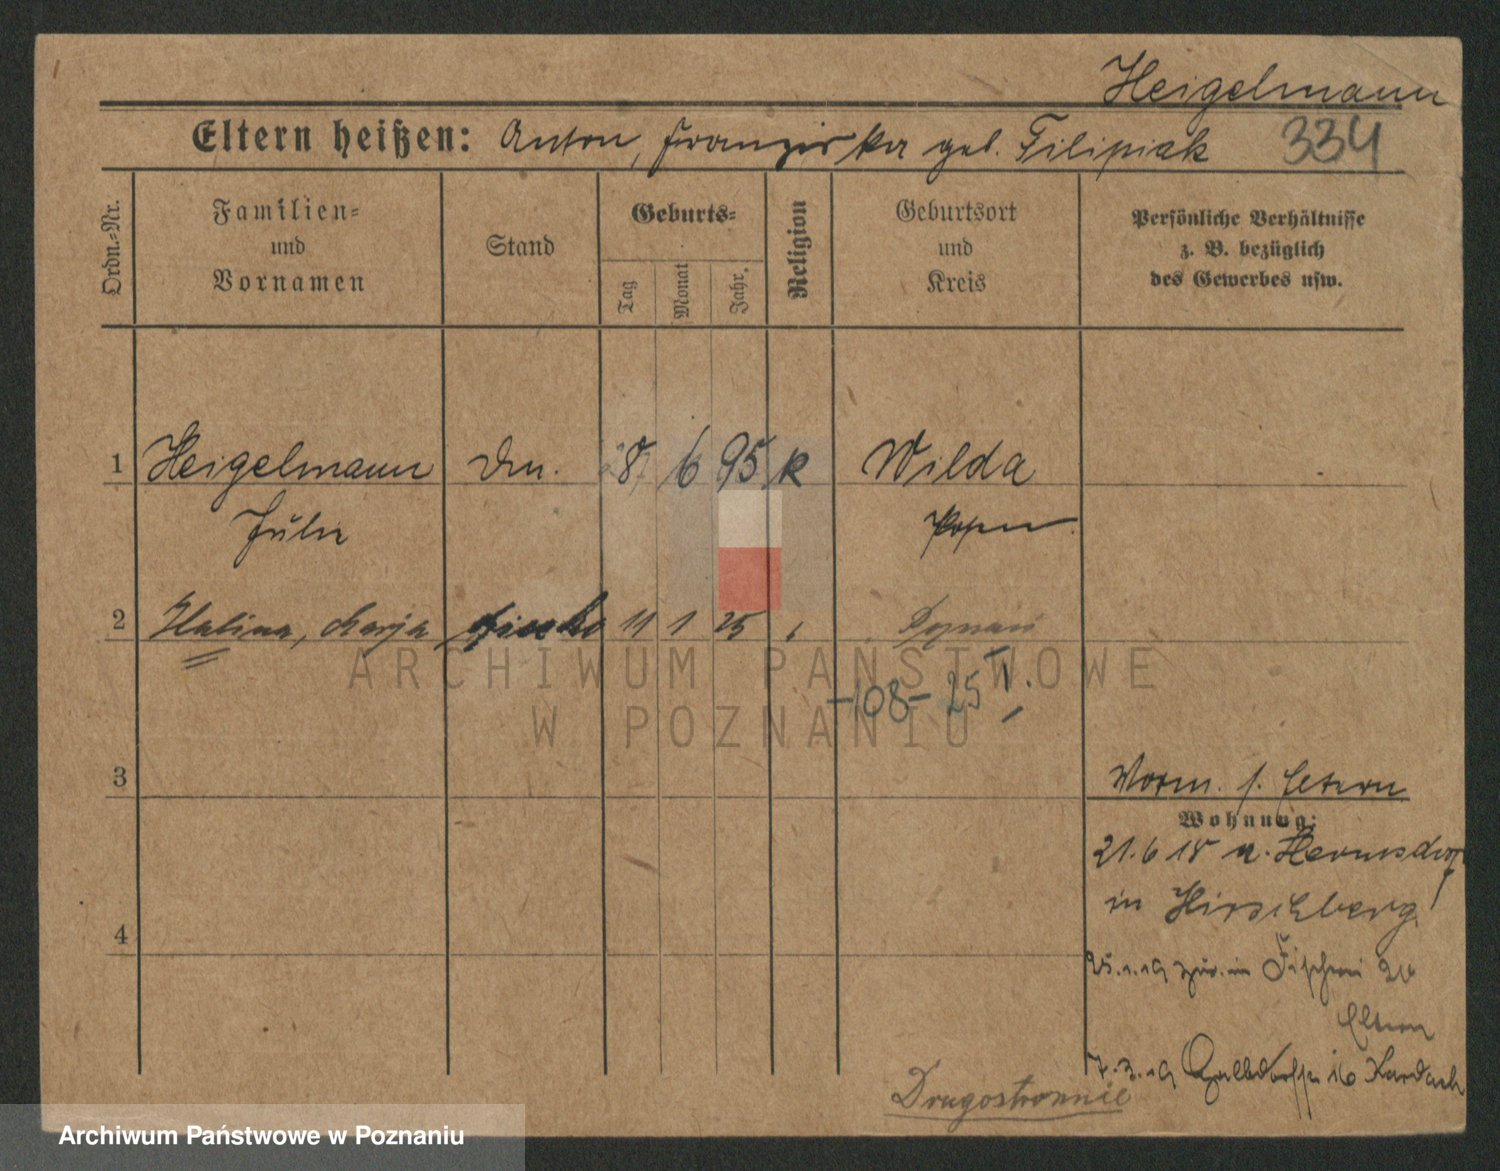 Heigelmann
Eltern heißen: Anton, Franziska geb. Filipiak 334
Ordn.-Nr.
Familien- und Vornamen
Stand
Geburts-
Tag
Monat
Jahr.
Religion
Geburtsort und Kreis
Persönliche Verhältnisse z. B. bezüglich des Gewerbes usw.
1 Heigelmann 6 95 k Wilda
Posen
2 Halina, Marja 11 1 25 Poznań
-108- 25 I.
ARCHIWUM PAŃSTWOWE
W POZNANIU
3
Vorm. s. Eltern
Wohnung:
21.6 18 n. Hermsdorf
in Hirschberg
4
25.1.19 zur. in Fischerei
Eltern
7.3.19 Kardach
Drugostronnie
Archiwum Państwowe w Poznaniu